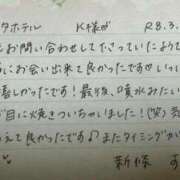 タホテル K様が R8.3.
にお問い合わせして下さっていたようて
にお会い出来て良かったですのいっ
喜しかったです!最後、噴水みたい
が目に焼きついちゃいました!(笑)
えて良かったです♪またタイミングが
と。 新様 す